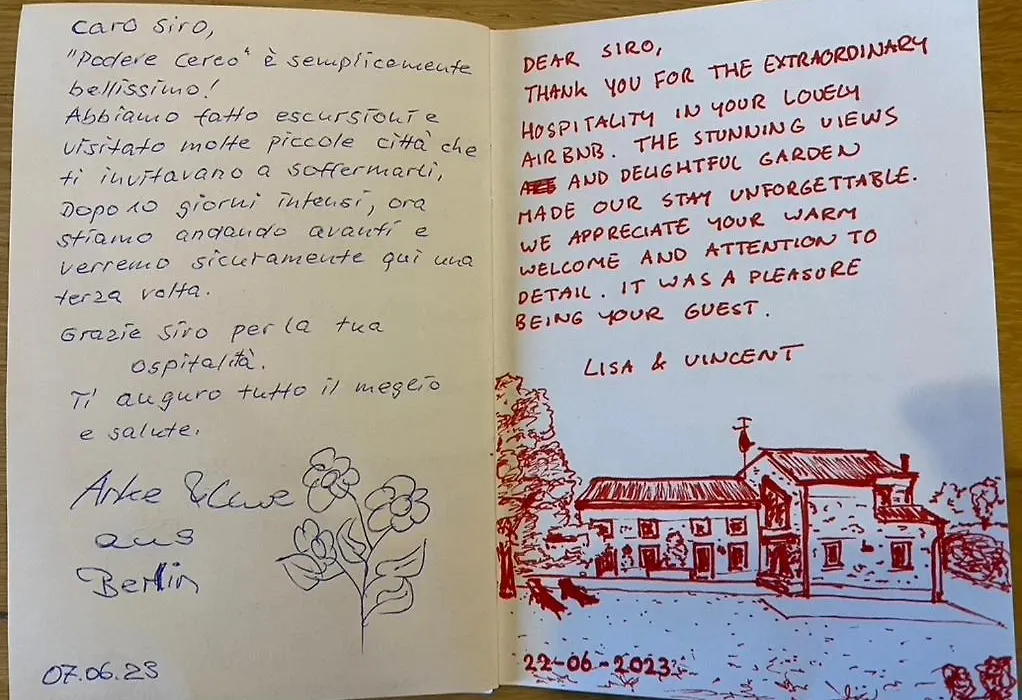 Caro Siro,
"Podere Cerco" è semplicemente
bellissimo!
Abbiamo fatto escursioni e
visitato molte piccole città che
ti invitavano a soffermarti,
Dopo 10 giorni intensi, ora
stiamo andando avanti e
verremo sicuramente qui una
terza volta.
Grazie Siro per la tua
ospitalità.
Ti auguro tutto il meglio
e salute.
Anke & Uwe
aus
Berlin
07.06.23
DEAR SIRO,
THANK YOU FOR THE EXTRAORDINARY
HOSPITALITY IN YOUR LOVELY
AIRBNB. THE STUNNING VIEWS
AND DELIGHTFUL GARDEN
MADE OUR STAY UNFORGETTABLE.
WE APPRECIATE YOUR WARM
WELCOME AND ATTENTION TO
DETAIL. IT WAS A PLEASURE
BEING YOUR GUEST.
LISA & VINCENT
22-06-2023